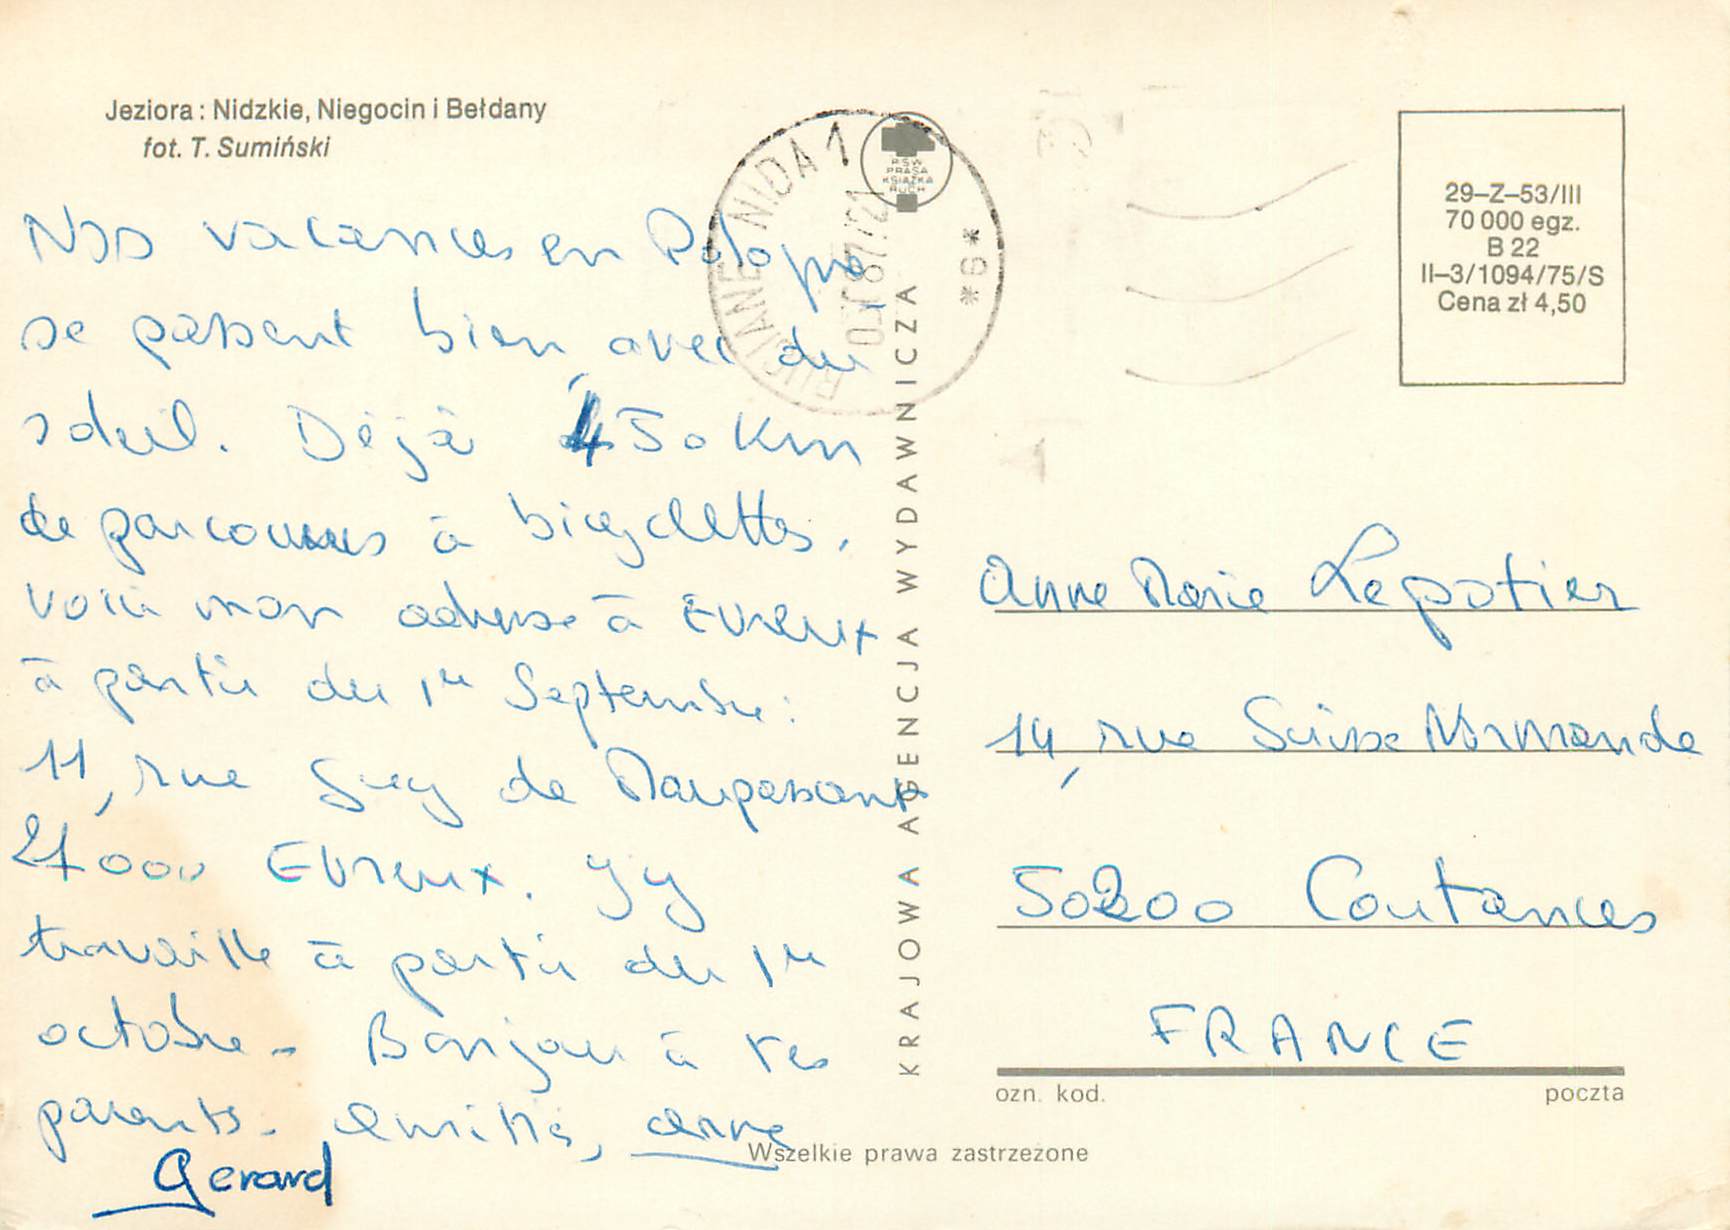 Jeziora: Nidzkie, Niegocin i Bełdany
fot. T. Sumiński
Nos vacances en Pologne
se passent bien, avec du
soleil. Déjà 450 km
de parcourus à bicyclettes.
Voici mon adresse à Evreux
à partir du 1er Septembre:
11, rue Guy de Maupassant
27000 Evreux. J'y
travaille à partir du 1er
octobre - Bonjour à tes
parents. Amitiés, Anne
Gerard
RUCIANE NIDA 1
*6*
PSW
PRASA
KSIĄŻKA
RUCH
KRAJOWA AGENCJA WYDAWNICZA
29-Z-53/III
70 000 egz.
B 22
II-3/1094/75/S
Cena zł 4,50
Anne Marie Lepotier
14, rue Suisse Normande
50200 Coutances
FRANCE
ozn. kod. poczta
Wszelkie prawa zastrzeżone